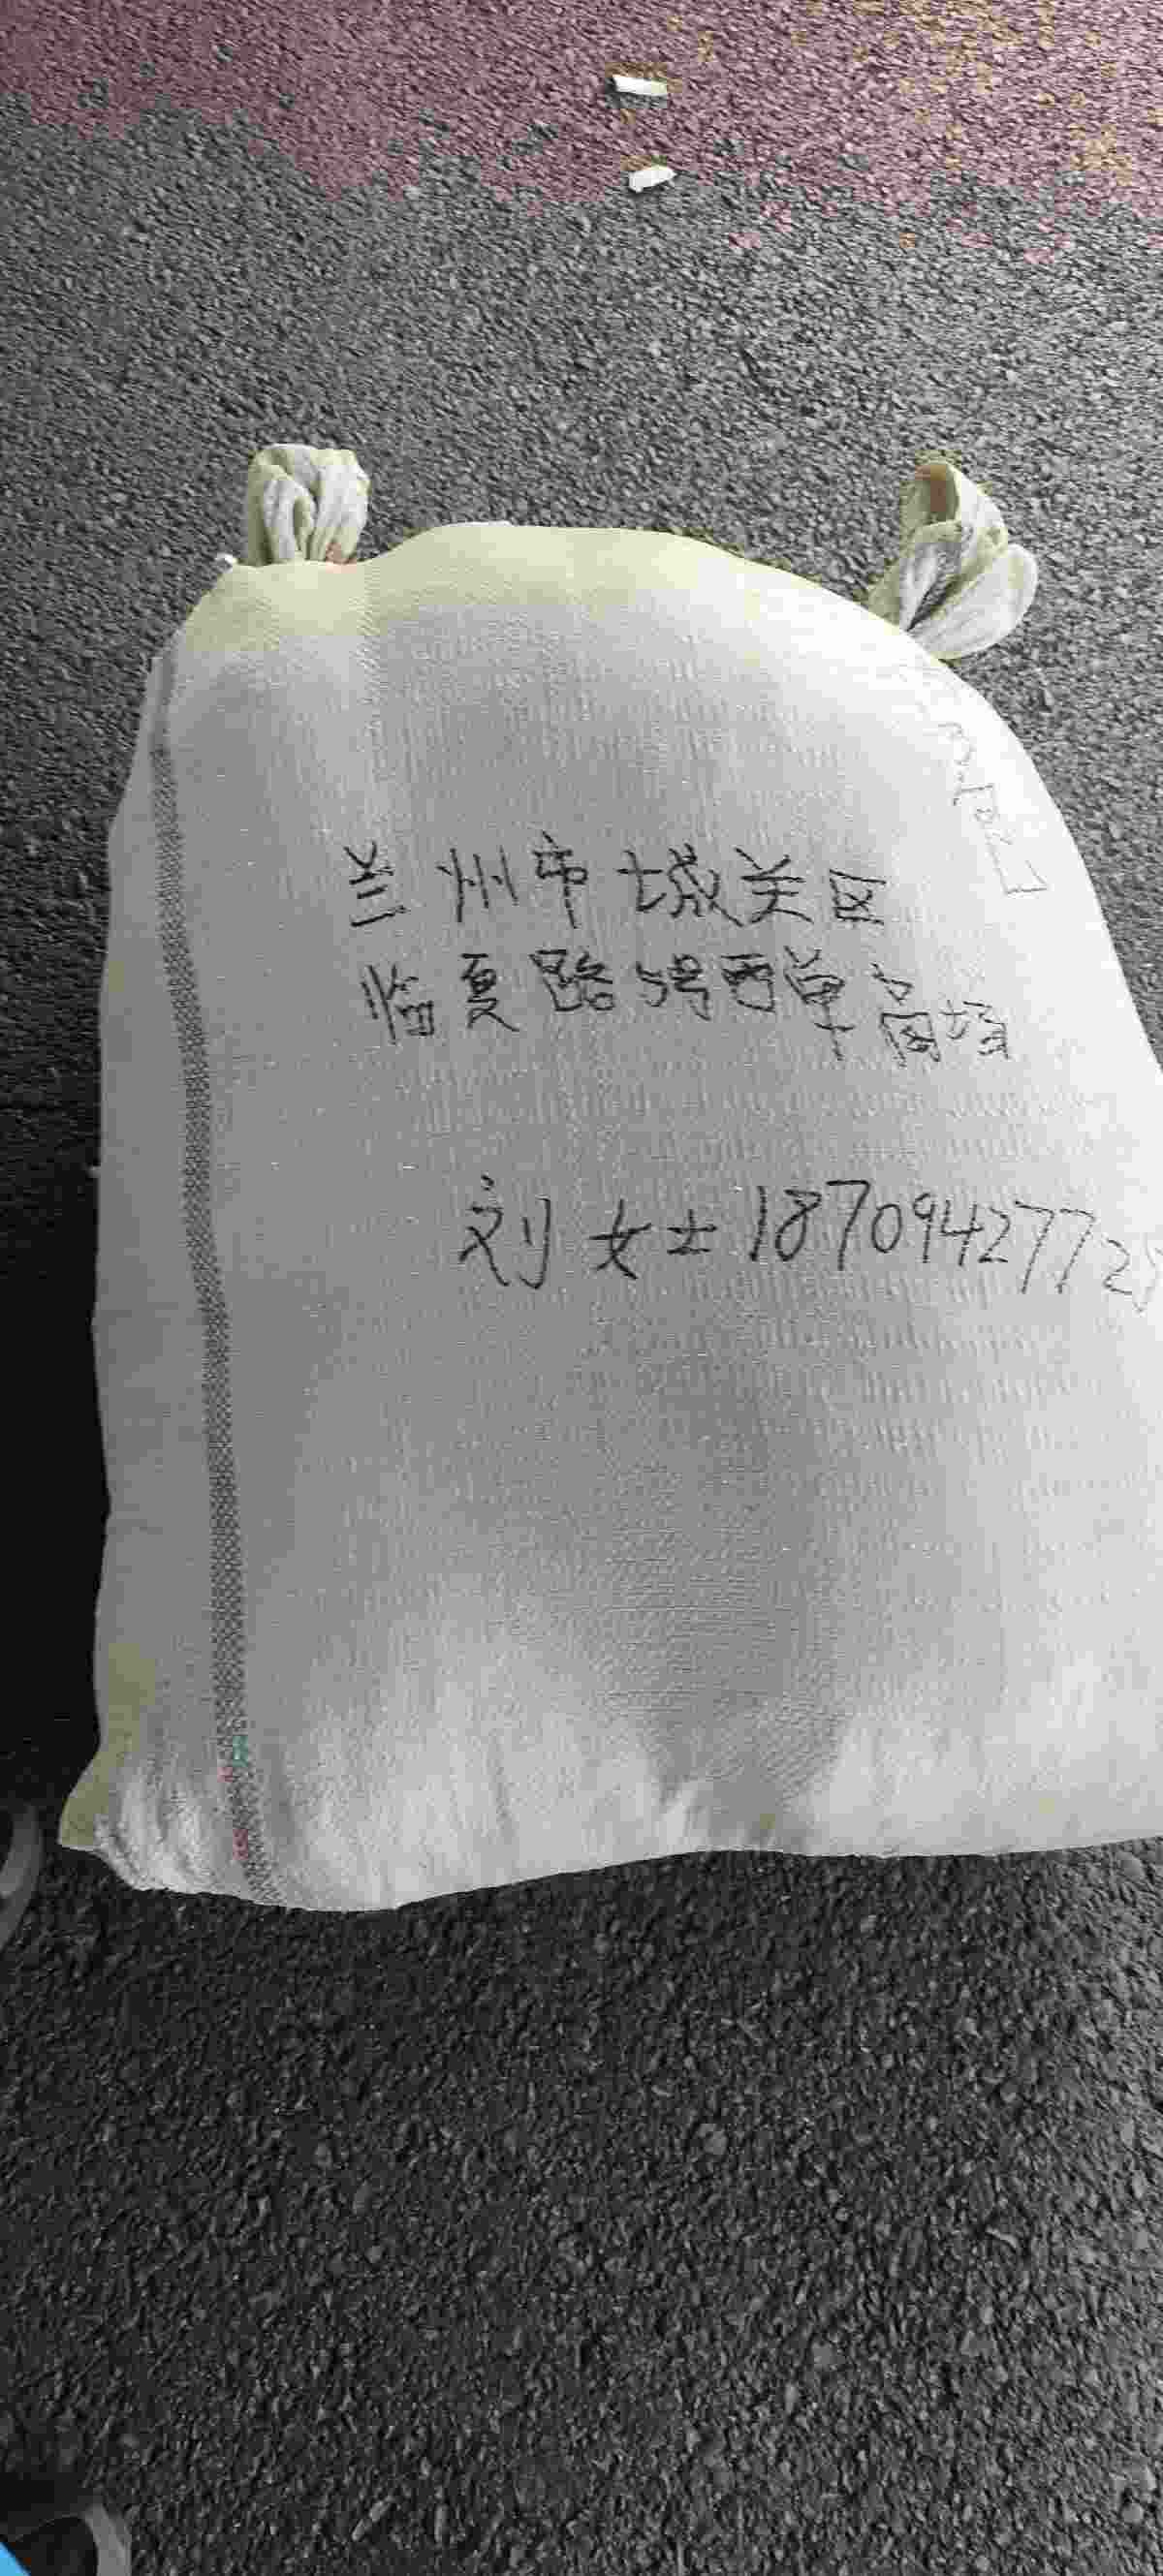 兰州市城关区
临夏路5号西单商场
刘女士1870942772